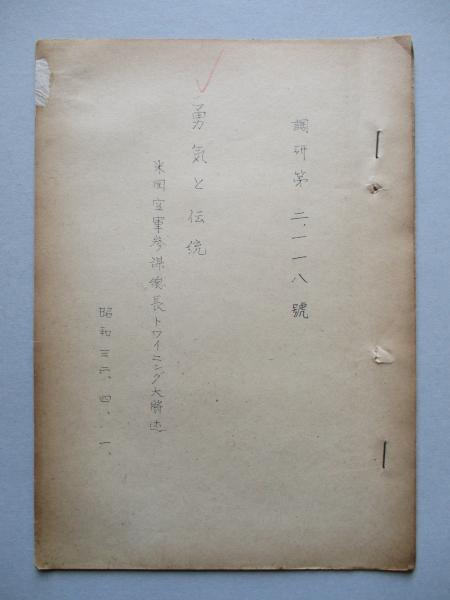 調研第二、一一八號
勇気と伝統
米国空軍参謀總長トワイニング大將述
昭和三、四、一、